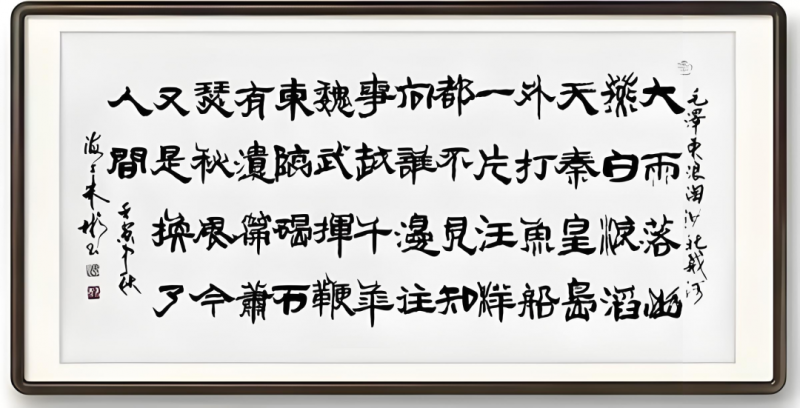 毛澤東浪淘沙北戴河
大雨落幽
燕白浪滔
天秦皇島
外打魚船
一片汪洋
都不見知
向誰邊往
事越千年
魏武揮鞭
東臨碣石
有遺篇蕭
瑟秋風今
又是換了
人間
壬寅秋
海上朱